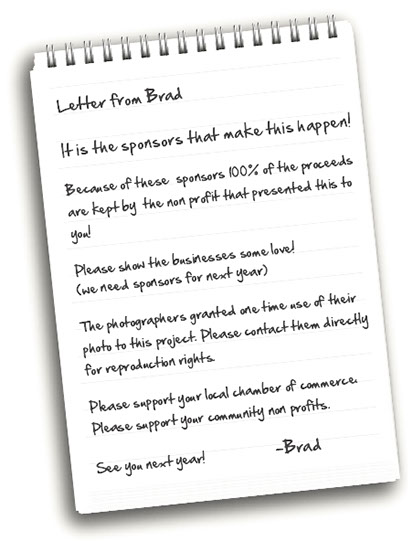 Letter from Brad
It is the sponsors that make this happen!
Because of these sponsors 100% of the proceeds
are kept by the non profit that presented this to
you!
Please show the businesses some love!
(we need sponsors for next year)
The photographers granted one time use of their
photo to this project. Please contact them directly
for reproduction rights.
Please support your local chamber of commerce.
Please support your community non profits.
See you next year! -Brad